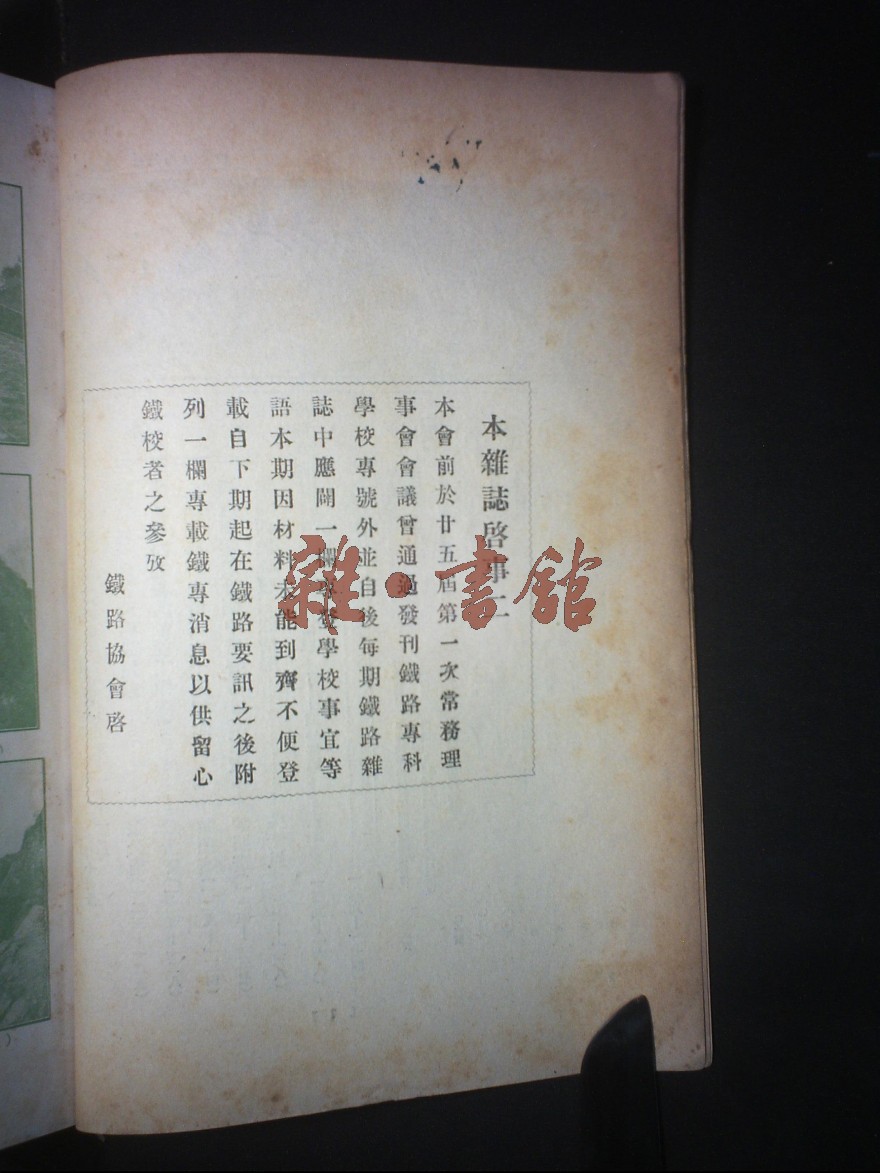 本雜誌啓事二
本會前於廿五屆第一次常務理
事會會議曾通過發刊鐵路專科
學校專號外並自後每期鐵路雜
誌中應闢一欄發學校事宜等
語本期因材料未能到齊不便登
載自下期起在鐵路要訊之後附
列一欄專載鐵專消息以供留心
鐵校者之參攷
鐵路協會啓
雜·書館